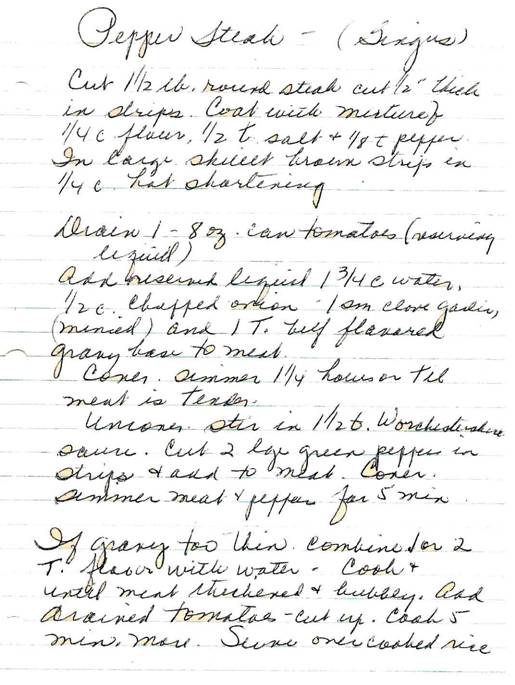 Pepper Steak - (Fingus)
Cut 1 1/2 lb. round steak cut 1/2" thick
in strips. Coat with mixture of
1/4 c flour, 1/2 t salt + 1/8 t pepper.
In large skillet brown strips in
1/4 c. hot shortening
Drain 1 - 8 oz. can tomatoes (reserving
liquid)
Add reserved liquid 1 3/4 c water,
1/2 c. chopped onion 1 sm clove garlic,
(minced) and 1 T. beef flavored
gravy base to meat.
Cover. Simmer 1 1/4 hours or til
meat is tender.
Uncover. Stir in 1 1/2 t. Worchestershire
sauce. Cut 2 lge green peppers in
strips & add to meat. Cover.
Simmer meat & peppers for 5 min.
If gravy too thin. combine 1 or 2
T. flour with water - Cook +
until meat thickened & bubbly. Add
drained tomatoes - cut up. Cook 5
min. more. Serve over cooked rice